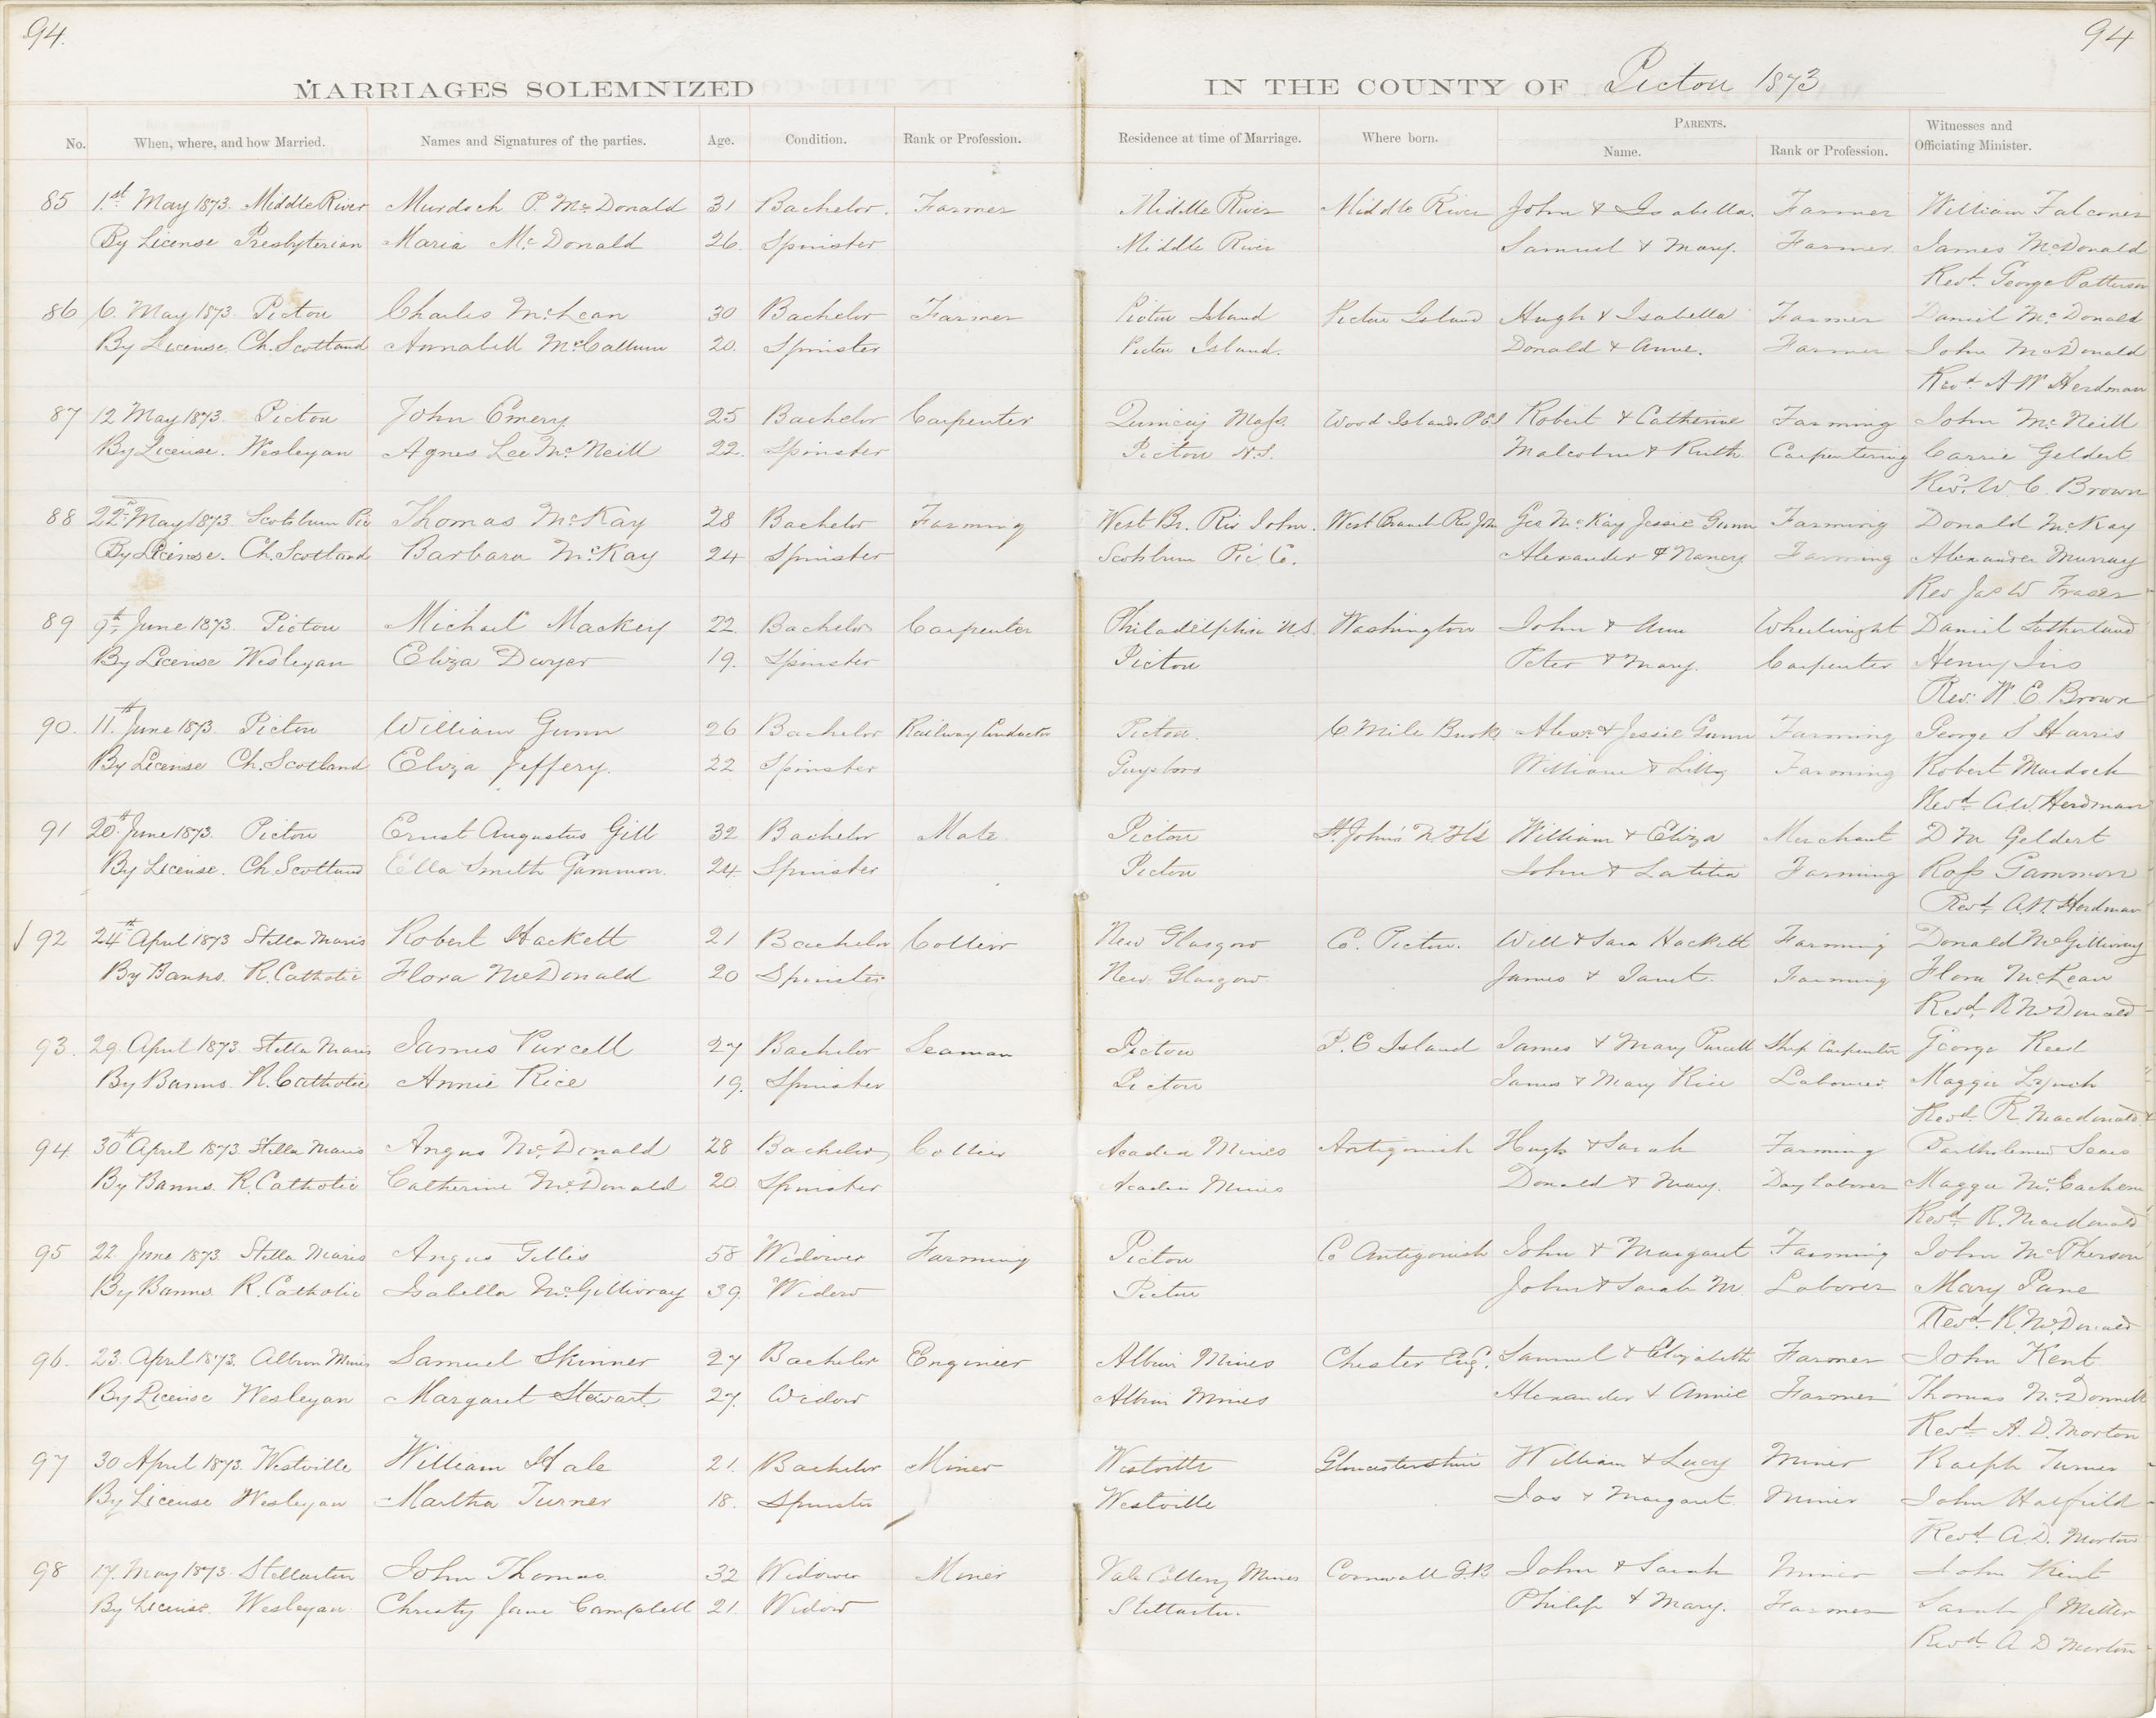 94. 94
MARRIAGES SOLEMNIZED IN THE COUNTY OF Pictou 1873
No. When, where, and how Married. Names and Signatures of the parties. Age. Condition. Rank or Profession. Residence at time of Marriage. Where born. PARENTS. Name. Rank or Profession. Witnesses and Officiating Minister.
85 1st May 1873. Middle River Murdoch P. McDonald 31 Bachelor. Farmer Middle River Middle River John & Isabella. Farmer William Falconer
By License Presbyterian Maria McDonald 26. Spinster Middle River Samuel & Mary. Farmer. James McDonald
Revd. George Patterson
86 6. May 1873. Pictou Charles McLean 30 Bachelor Farmer Pictou Island Pictou Island Hugh & Isabella Farmer Daniel McDonald
By License. Ch. Scotland Annabell McCallum 20. Spinster Pictou Island. Donald & Anne. Farmer John McDonald
Revd. A W Herdman
87 12 May 1873. Pictou John Emery 25 Bachelor Carpenter Quincy Mass. Wood Islands P.E.I Robert & Catherine Farming John McNeill
By License. Wesleyan Agnes Lee McNeill 22. Spinster Pictou N.S. Malcolm & Ruth. Carpentering Carrie Geldert
Rev. W. C. Brown
88 22nd May 1873. Scotsburn Pic Thomas McKay 28 Bachelor Farming West Br. Riv John. West Branch Riv Jon Geo McKay Jessie Gunn Farming Donald McKay
By License. Ch. Scotland Barbara McKay 24 Spinster Scotsburn Pic Co. Alexander & Nancy Farming Alexander Murray
Rev Jas W Fraser
89 9th June 1873. Pictou Michael Mackey 22. Bachelor Carpenter Philadelphia U.S. Washington John & Ann Wheelwright Daniel Sutherland
By License Wesleyan Eliza Dwyer 19. Spinster Pictou Peter & Mary. Carpenter Henry
Rev. W. C Brown
90. 11th June 1873. Pictou William Gunn 26 Bachelor Railway Conductor Pictou. 6 Mile Brook Alexr & Jessie Gunn Farming George S Harris
By License Ch. Scotland Eliza Jeffery. 22 Spinster Guysboro William & Lilly Farming Robert Murdoch
Revd. A.W. Herdman
91 20th June 1873. Pictou Ernest Augustus Gill 32 Bachelor Mate Pictou St. John's N. Fld William & Eliza Merchant D M Geldert
By License. Ch. Scotland Ella Smith Gammon. 24 Spinster Pictou John & Latitia Farming Ross Gammon
Revd. A.W. Herdman
92 24th April 1873 Stella Maris Robert Hackett 21 Bachelor Collier New Glasgow Co. Pictou. Will & Sara Hackett Farming Donald McGillivray
By Banns. R. Catholic Flora McDonald 20 Spinster New Glasgow. James & Janet. Farming Flora McLean
Revd. R McDonald
93. 29. April 1873. Stella Maris James Purcell 27 Bachelor Seaman Pictou P. E Island James & Mary Purcell Ship Carpenter George Reed
By Banns. R. Catholic Annie Rice 19. Spinster Pictou James & Mary Rice Labourer. Maggie Lynch
Revd. R. Macdonald.
94. 30th April 1873. Stella Maris Angus McDonald 28 Bachelor Collier Acadia Mines Antigonish Hugh & Sarah Farming Bartholemew Sears
By Banns. R. Catholic Catherine McDonald 20. Spinster Acadia Mines Donald & Mary. Day laborer Maggie McEachern
Revd. R. Macdonald
95 22 June 1873. Stella Maris Angus Gillis 58 Widower Farming Pictou Co Antigonish John & Margaret Farming John McPherson
By Banns. R. Catholic Isabella McGillivray 39. Widow Pictou John & Sarah M Laborer Mary Pane
Revd. R. McDonald
96. 23. April 1873. Albion Mines Samuel Skinner 27 Bachelor Engineer Albion Mines Chester Eng. Samuel & Elizabeth Farmer John Kent
By License Wesleyan Margaret Stewart 27. Widow Albion Mines Alexander & Annie Farmer Thomas McDonnell
Revd. A. D. Morton
97 30 April 1873. Westville William Hale 21. Bachelor Miner Westville Gloucestershire William & Lucy Miner Ralph Turner
By License Wesleyan Martha Turner 18. Spinster Westville Jas & Margaret. Miner John Hatfield
Revd. A. D. Morton
98 17. May 1873. Stellarton John Thomas. 32 Widower Miner Vale Colliery Mines Cornwall G.B John & Sarah Miner John Kent
By License. Wesleyan Christy Jane Campbell 21. Widow Stellarton. Philip & Mary. Farmer Sarah J Miller
Revd. A D Morton